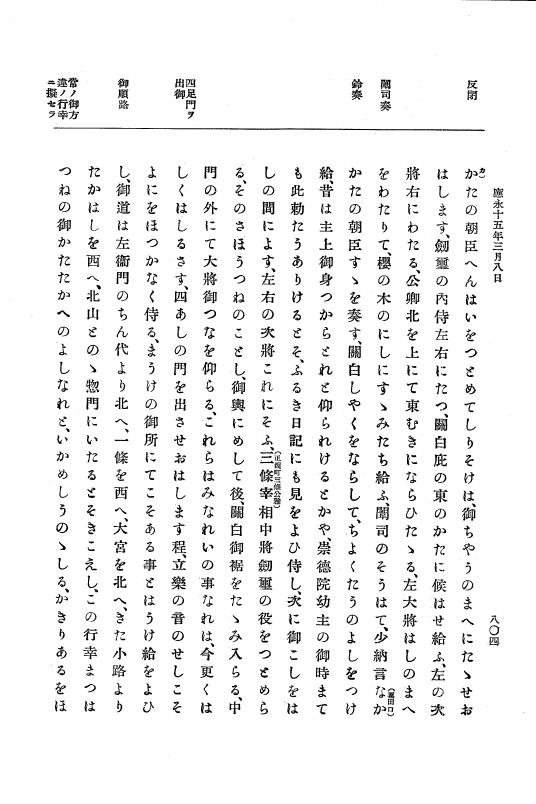 應永十五年三月八日
八〇四
反閇
闈司奏
鈴奏
四足門ヲ
出御
御順路
常ノ御方
違ノ行幸
ニ擬セラ
かたの朝臣へんはいをつとめてしりそけは、御ちやうのまへにたゝせお
はします、劒璽の內侍左右にたつ、關白庇の東のかたに候はせ給ふ、左の次
將右にわたる、公卿北を上にて東むきにならひたゝる、左大將はしのまへ
をわたりて、櫻の木のにしにすゝみたち給ふ、闈司のそうはて、少納言なか
(東田口)
かたの朝臣すゝを奏す、關白しやくをならして、ちよくたうのよしをつけ
給、昔は主上御身つからとれと仰られけるとかや、崇德院幼主の御時まて
も此勅たうありけるとそ、ふるき日記にも見をよひ侍し、次に御こしをは
しの間によす、左右の次將これにそふ、三條宰相中將劒璽の役をつとめら
(正親町三條公雅)
る、そのさほうつねのことし、御輿にめして後、關白御裾をたゝみ入らる、中
門の外にて大將御つなを仰らる、これらはみなれいの事なれは、今更くは
しくはしるさす、四あしの門を出させおはします程、立樂の音のせしこそ
よにをほつかなく侍る、まうけの御所にてこそある事とはうけ給をよひ
し、御道は左衞門のちん代より北へ、一條を西へ、大宮を北へ、きた小路より
たかはしを西へ、北山とのゝ惣門にいたるとそきこえし、この行幸まつは
つねの御かたたかへのよしなれと、いかめしうのゝしる、かきりあるをほ